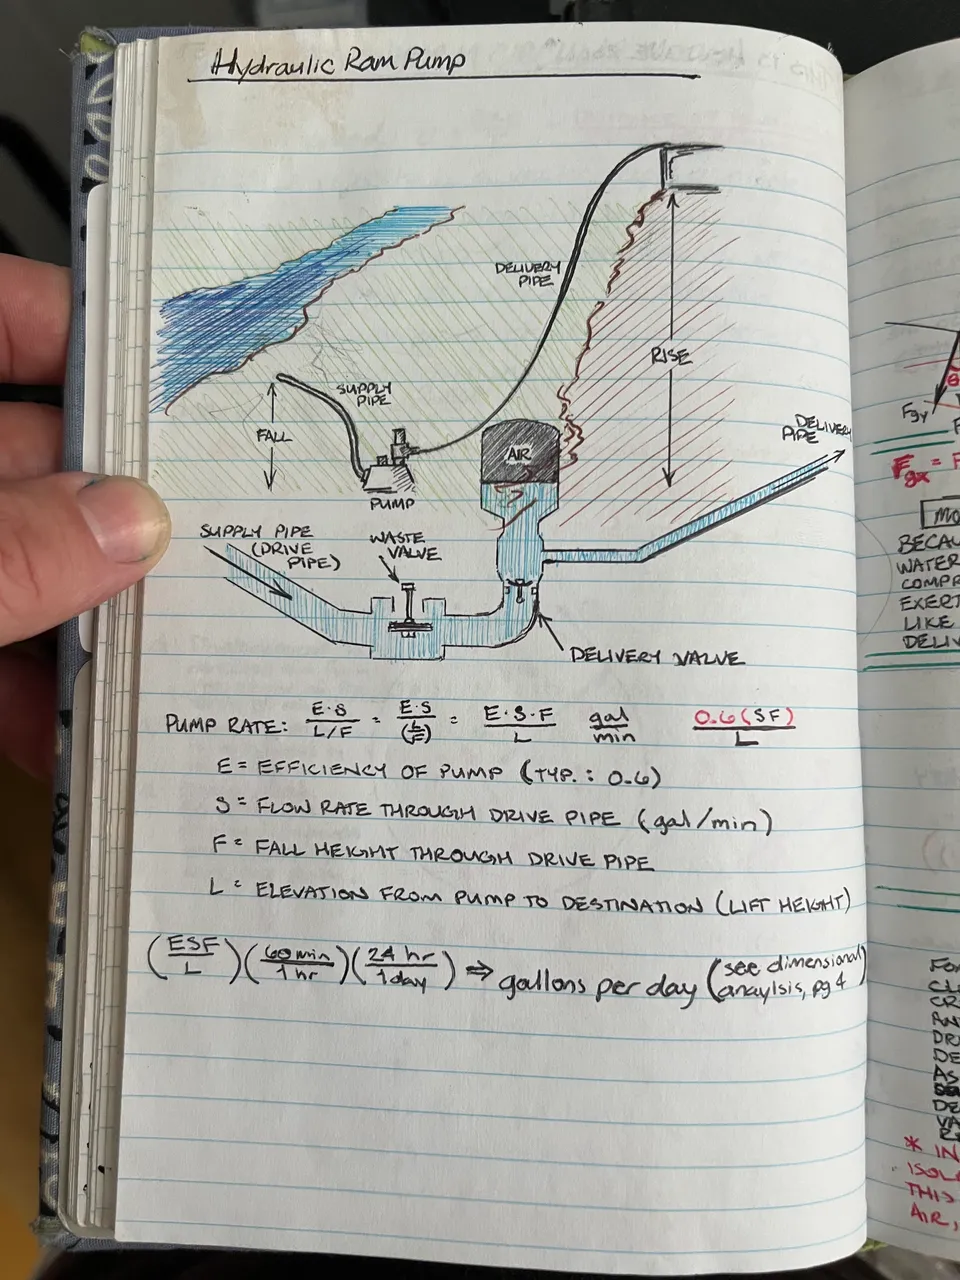 Hydraulic Ram Pump
DELIVERY
PIPE
RISE
SUPPLY
PIPE
FALL
PUMP
AIR
DELIVERY
PIPE
SUPPLY PIPE
(DRIVE
PIPE)
WASTE
VALVE
DELIVERY VALVE
PUMP RATE: E·S / L/F = E·S / (L/F) = E·S·F / L gal/min 0.6(SF) / L
E = EFFICIENCY OF PUMP (TYP.: 0.6)
S = FLOW RATE THROUGH DRIVE PIPE (gal/min)
F = FALL HEIGHT THROUGH DRIVE PIPE
L = ELEVATION FROM PUMP TO DESTINATION (LIFT HEIGHT)
(ESF / L)(60 min / 1 hr)(24 hr / 1 day) ⇒ gallons per day (see dimensional
anaylsis, pg 4)
Fgy
θ
Fgx = F
MO
BECAU
WATER
COMPR
EXERT
LIKE
DELIV
FO
CL
CR
AN
DR
DE
AS
DE
VA
* IN
ISOL
THIS
AIR,